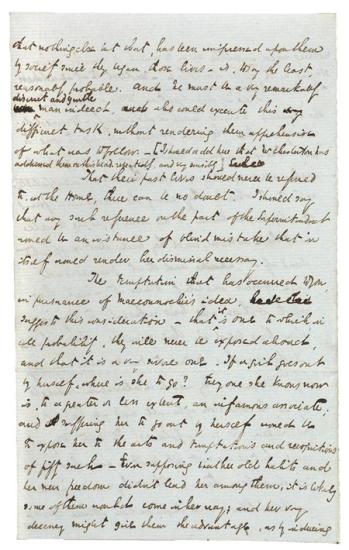 that nothing else but that, has been impressed upon them
by society since they began those lives - is, to say the least
reasonably probable. And he must be a very remarkably
discreet and gentle
man indeed, who could execute this very
difficult task, without rendering them apprehensive
of what was to follow. - [I should add here that Mr Chesterton has
addressed them on this head repeatedly, and very sensibly]
That their past lives should never be referred
to, at the Home, there can be no doubt. I should say
that any such reference on the part of the Superintendent
would be an instance of blind mistake that in
itself would render her dismissal necessary.
The temptation that has occurred
in pursuance of Macconochie's idea,
suggests this consideration - that it is one to which in
all probability, they will never be exposed abroad,
and that it is a one. If a girl goes out
by herself, where is she to go? Every one she knows now
is, to a greater or less extent, an infamous associate;
and suffering her to go out by herself would be
to expose her to the arts and temptations and recognitions
of fifty such - Even supposing that her old habits and
her new freedom didn't lead her among them, it is likely
some of them would come in her way; and her very
decency might give them the advantage, as by inducing